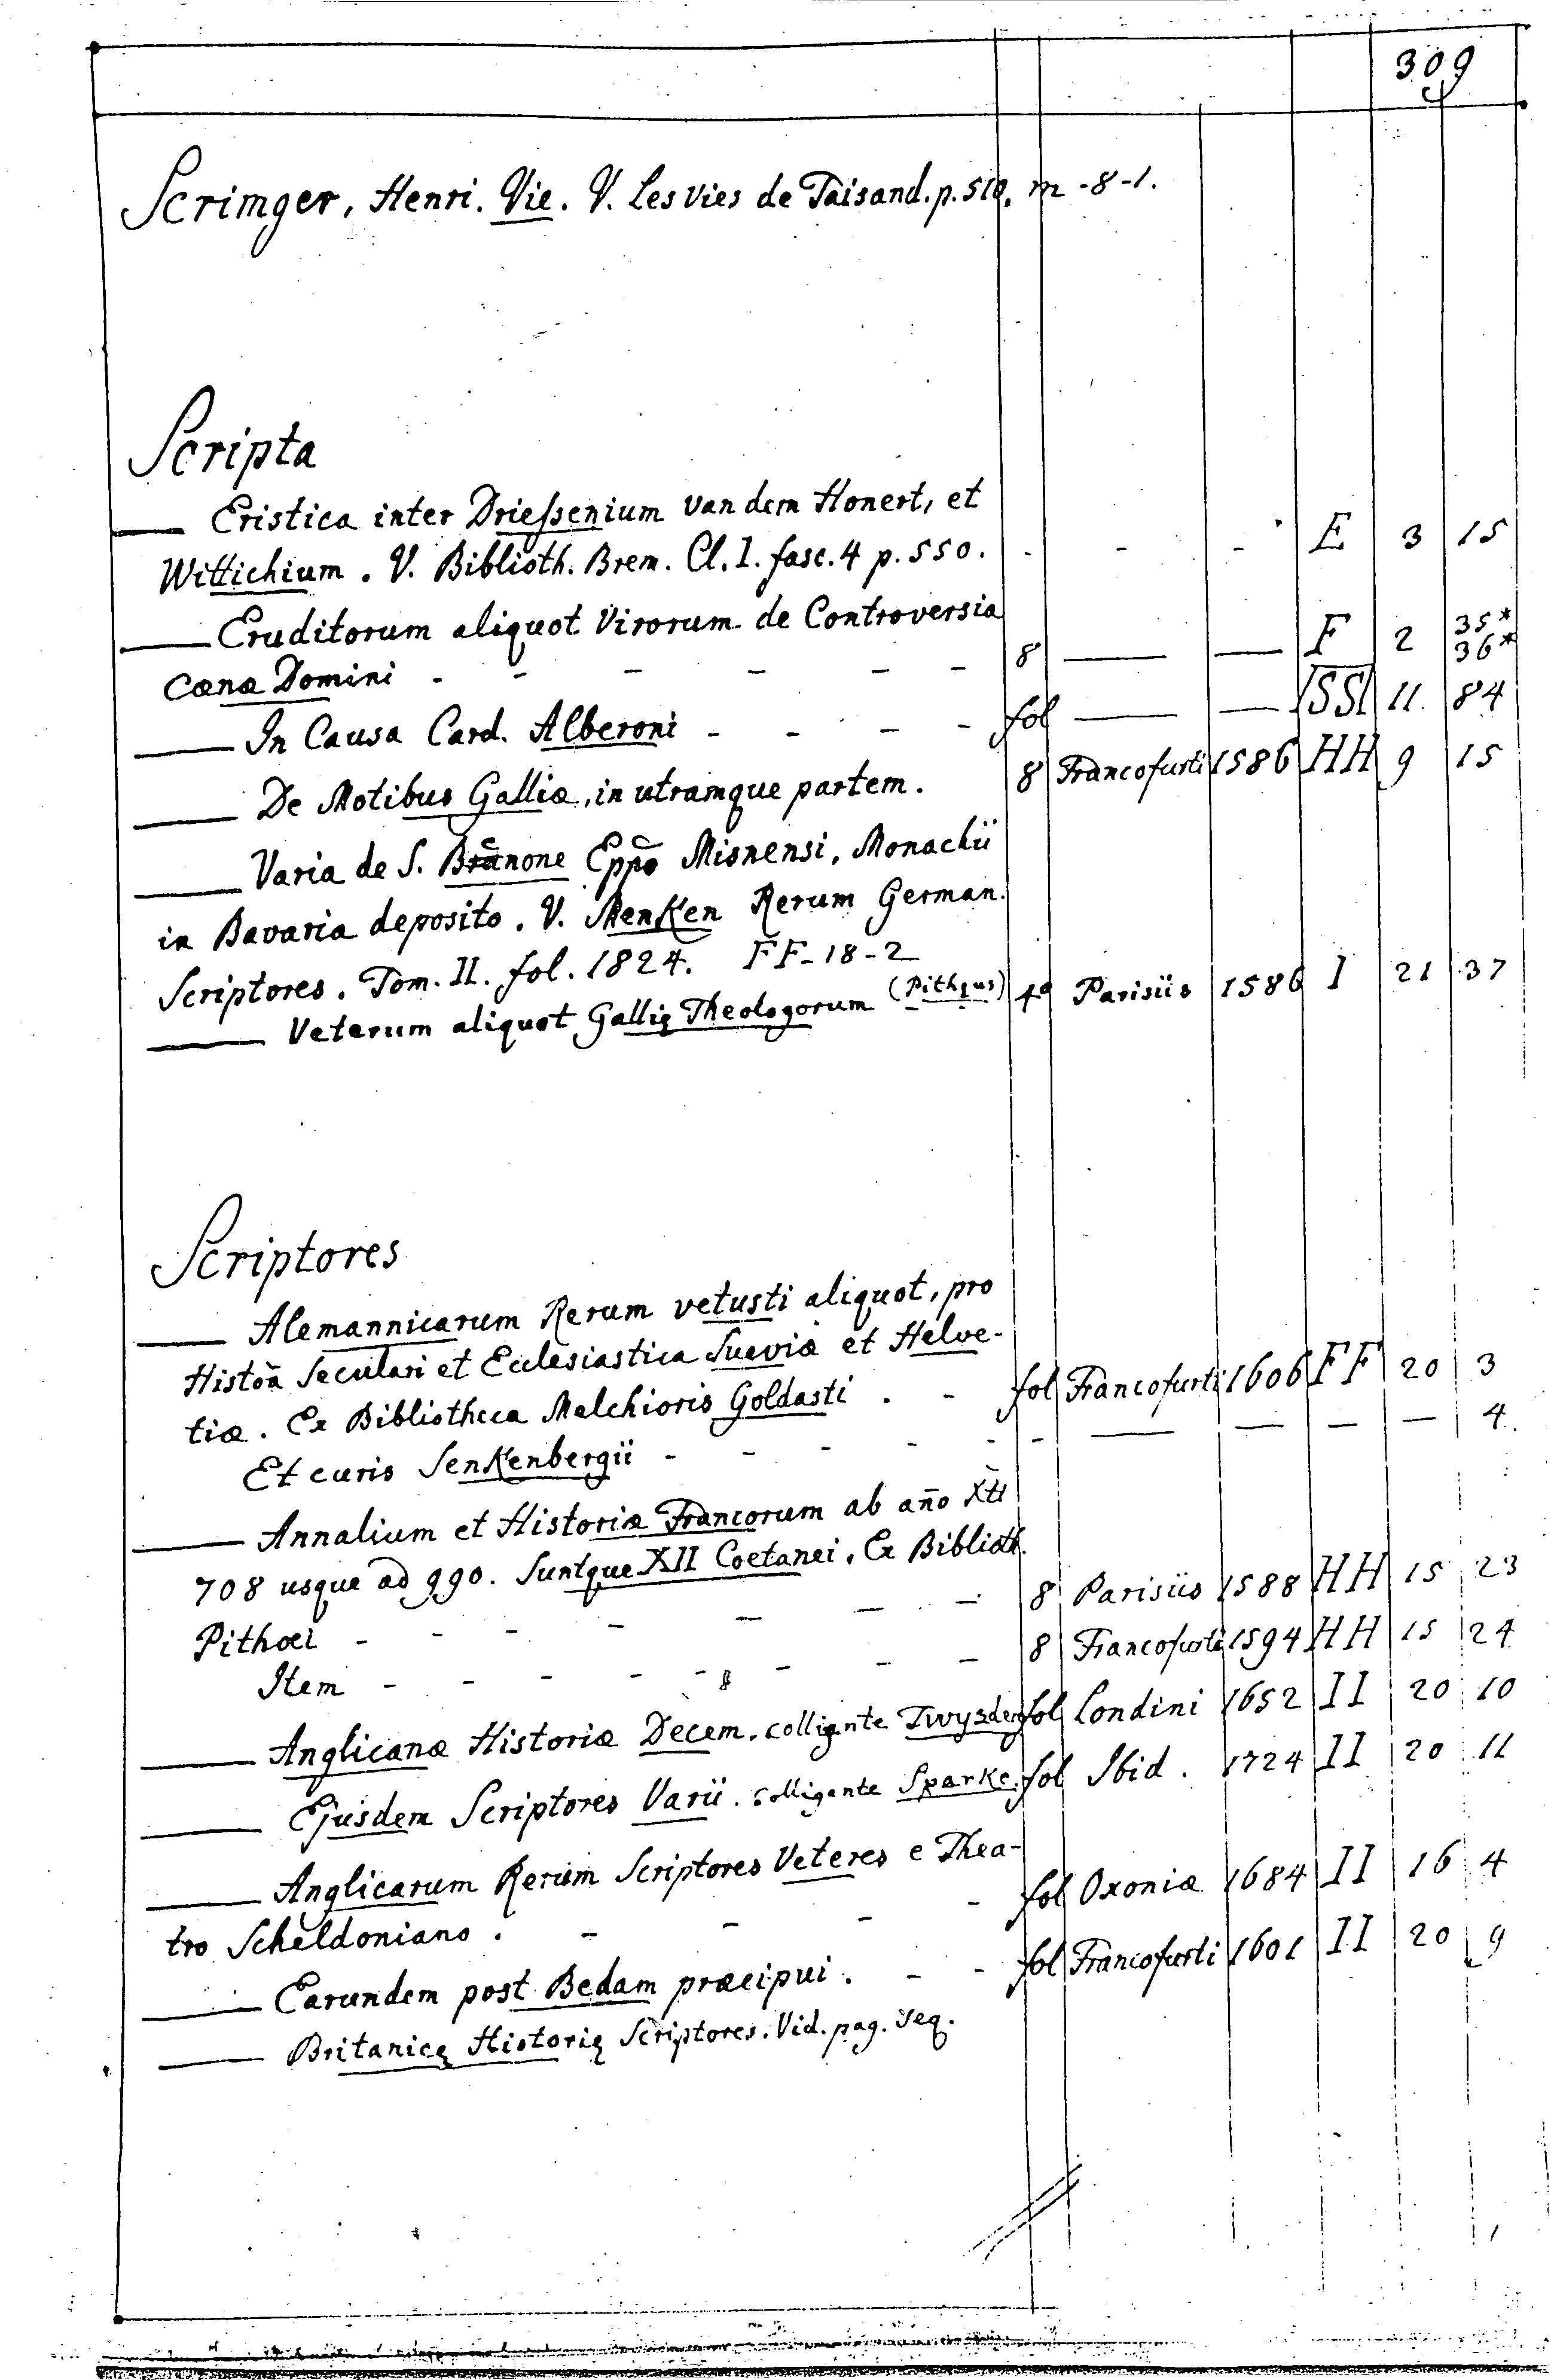 309
Scrimger, Henri. Vie. V. Les Vies de Taisand. p. 510. m -8-1.
Scripta
— Eristica inter Driessenium van dem Honert, et
Wittichium. V. Biblioth. Brem. Cl. I. fasc. 4 p. 550. - - - E 3 15
— Eruditorum aliquot Virorum de Controversia
Cœnæ Domini - - - - - - 8 — — F 2 35* 36*
— In Causa Card. Alberoni - - - - fol — — SS 11 84
— De Motibus Galliæ, in utramque partem. 8 Francofurti 1586 HH 9 15
— Varia de S. Bennone Eppõ Misnensi, Monachii
in Bavaria deposito. V. Menken Rerum German.
Scriptores. Tom. II. fol. 1824. FF-18-2
— Veterum aliquot Gallię Theologorum (Pithęus) 4º Parisiis 1586 I 21 37
Scriptores
— Alemannicarum Rerum vetusti aliquot, pro
Histoã Seculari et Ecclesiastica Sueviæ et Helve-
tiæ. Ex Bibliotheca Melchioris Goldasti . - fol Francofurti 1606 FF 20 3
Et curis Senkenbergii - - - - - - — — — — 4.
— Annalium et Historiæ Francorum ab año Xti
708 usque ad 990. Suntque XII Coetanei. Ex Biblioth.
Pithoei - - - - - - - 8 Parisiis 1588 HH 15 23
Item - - - - - - - 8 Francofurti 1594 HH 15 24
— Anglicanæ Historiæ Decem. colligente Twysden fol Londini 1652 II 20 10
— Ejusdem Scriptores Varii. colligente Sparke. fol Ibid. 1724 II 20 11
— Anglicarum Rerum Scriptores Veteres e Thea-
tro Scheldoniano. - - - - fol Oxoniæ 1684 II 16 4
— Earundem post Bedam præcipui. - - fol Francofurti 1601 II 20 9
— Britanicę Historię Scriptores. Vid. pag. seq.